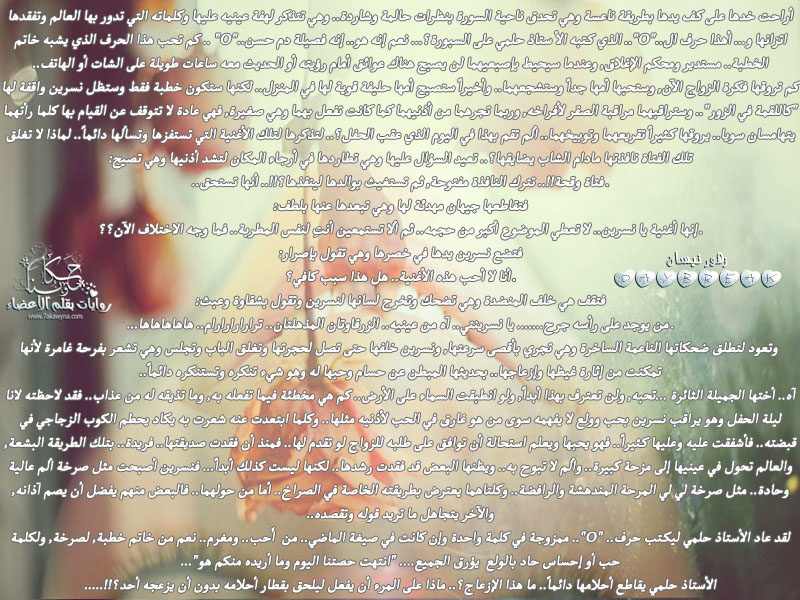 أراحت خدها على كف يدها بطريقة ناعسة وهي تحدق ناحية السبورة بنظرات حالمة وشاردة.. وهي تتذكر لهفة عينيه عليها وكلماته التي تدور بها العالم وتفقدها
اتزانها و... أهذا حرف ال.."O".. الذي كتبه الأستاذ حلمي على السبورة؟... نعم إنه هو.. إنه فصيلة دم حسن.."O" .. كم تحب هذا الحرف الذي يشبه خاتم
الخطبة.. مستدير ومحكم الإغلاق, وعندما سيحيط بإصبعيهما لن يصبح هناك عوائق أمام رؤيته أو الحديث معه ساعات طويلة على الشات أو الهاتف..
كم تروقها فكرة الزواج الآن, وستحبها أمها جداً وستشجعهما.. وأخيراً ستصبح أمها حليفة قوية لها في المنزل.. لكنها ستكون خطبة فقط وستظل نسرين واقفة لها
"كاللقمة في الزور".. وستراقبهما مراقبة الصقر لأفراخه, وربما تجرهما من أذنيهما كما كانت تفعل بهما وهي صغيرة, فهي عادة لا تتوقف عن القيام بها كلما رأتهما
يتهامسان سويا.. يروقها كثيراً تقريعهما وتوبيخهما.. ألم تقم بهذا في اليوم الذي عقب الحفل؟.. لتذكرها لتلك الأغنية التي تستفزها وتسألها دائماً.. لماذا لا تغلق
تلك الفتاة نافذتها مادام الشاب يضايقها؟.. تعيد السؤال عليها وهي تطاردها في أرجاء المكان لتشد أذنيها وهي تصيح:
.فتاة وقحة!!.. تترك النافذة مفتوحة, ثم تستغيث بوالدها لينقذها؟!!.. أنها تستحق..
فتقاطعها جيهان مهدئة لها وهي تبعدها عنها بلطف:
.إنها أغنية يا نسرين.. لا تعطي الموضوع أكبر من حجمه.. ثم ألا تستمعين أنتِ لنفس المطربة.. فما وجه الاختلاف الآن؟؟
فتضع نسرين يدها في خصرها وهي تقول بإصرار:
.أنا لا أحب هذه الأغنية.. هل هذا سبب كافي؟
فتقف هي خلف المنضدة وهي تضحك وتخرج لسانها لنسرين وتقول بشقاوة وعبث:
.من يوجد على رأسه جرح....... يا نسرينتي.. آه من عينيه.. الزرقاوتان المذهلتان.. تراراراراراام.. هاهاهاهاها...
وتعود لتطلق ضحكاتها الناعمة الساخرة وهي تجري بأقصى سرعتها, ونسرين خلفها حتى تصل لحجرتها وتغلق الباب وتجلس وهي تشعر بفرحة غامرة لأنها
تمكنت من إثارة غيظها وإزعاجها.. بحديثها المبطن عن حسام وحبها له وهو شيء تنكره وتستنكره دائماً..
آه.. أختها الجميلة الثائرة ...تحبه, ولن تعترف بهذا أبداً, ولو انطبقت السماء على الأرض.. كم هي مخطئة فيما تفعله به, وما تذيقه له من عذاب.. فقد لاحظته لانا
ليلة الحفل وهو يراقب نسرين بحب وولع لا يفهمه سوى من هو غارق في الحب لأذنيه مثلها.. وكلما ابتعدت عنه شعرت به يكاد يحطم الكوب الزجاجي في
قبضته.. فأشفقت عليه وعليها كثيراً.. فهو يحبها ويعلم استحالة أن توافق على طلبه للزواج لو تقدم لها.. فمنذ أن فقدت صديقتها.. فريدة.. بتلك الطريقة البشعة,
والعالم تحول في عينيها إلى مزحة كبيرة.. وألم لا تبوح به.. ويظنها البعض قد فقدت رشدها.. لكنها ليست كذلك أبداً... فنسرين أصبحت مثل صرخة ألم عالية
وحادة.. مثل صرخة لي لي المرحة المندهشة والرافضة.. وكلتاهما يعترض بطريقته الخاصة في الصراخ.. أما من حولهما.. فالبعض منهم يفضل أن يصم آذانه,
والآخر يتجاهل ما تريد قوله وتقصده..
لقد عاد الأستاذ حلمي ليكتب حرف.. "O".. ممزوجة في كلمة واحدة وإن كانت في صيغة الماضي.. من أحب.. ومغرم.. نعم من خاتم خطبة, لصرخة, ولكلمة
حب أو إحساس حاد بالولع يؤرق الجميع.... "انتهت حصتنا اليوم وما أريده منكم هو"...
الأستاذ حلمي يقاطع أحلامها دائماً.. ما هذا الإزعاج؟.. ماذا على المرء أن يفعل ليلحق بقطار أحلامه بدون أن يزعجه أحد؟!!.....
روايات بقلم الأعضاء
www.7akawyna.com
DAYBREAK